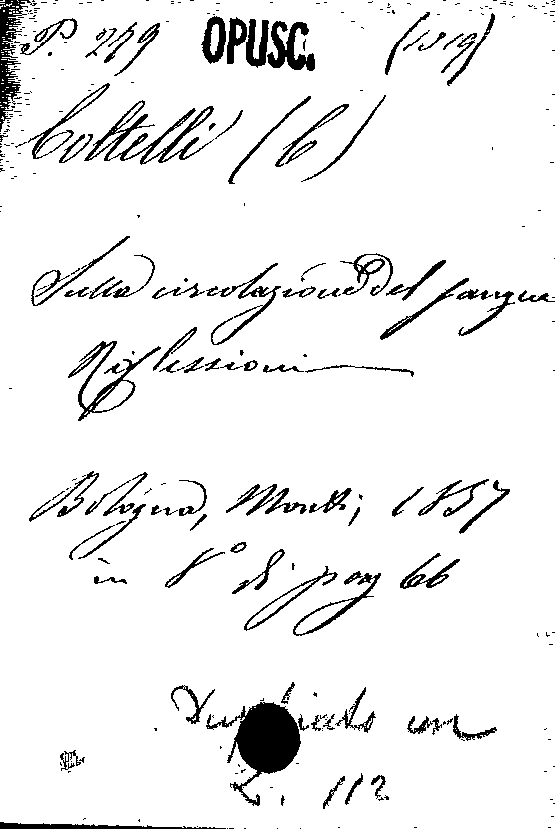 P. 279 OPUSC. (1519)
Coltelli (C)
Sulla circolazione del sangue
Riflessioni
Bologna, Monti, 1857
in 8° di pag 66
Duplicato in
Z. 112